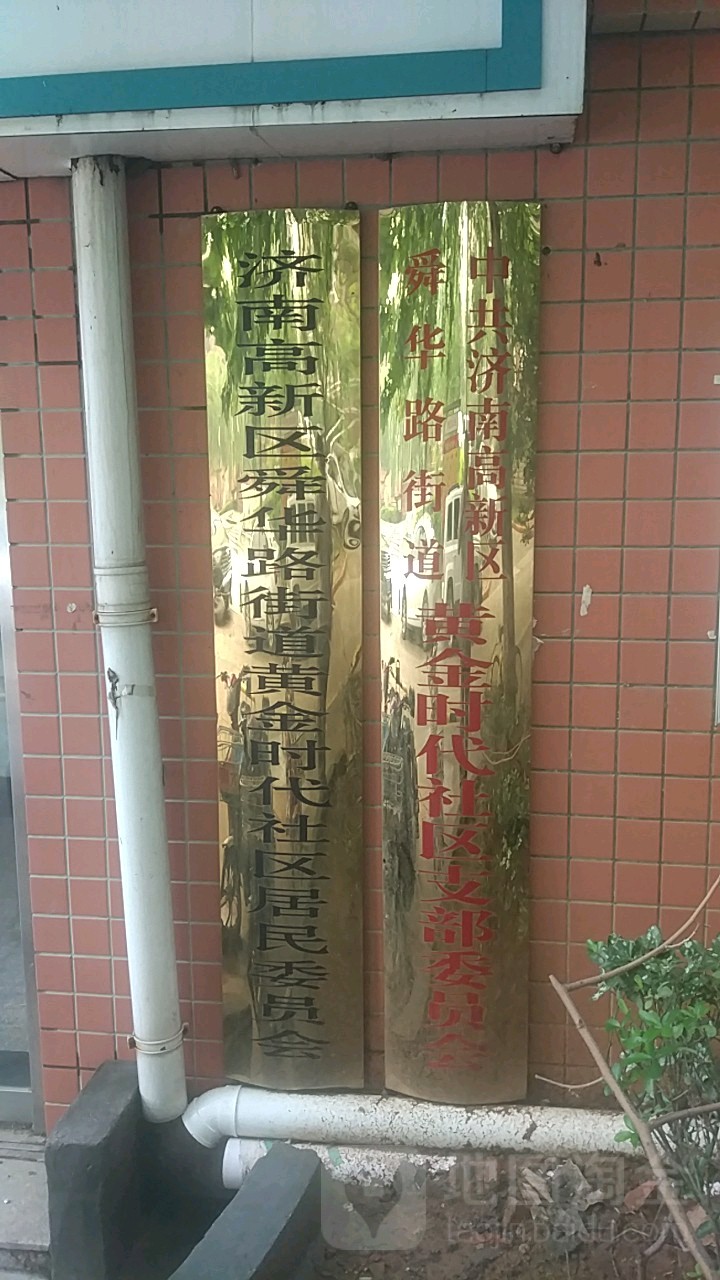 中共济南高新区
舜华路街道
黄金时代社区支部委员会
济南高新区舜华路街道黄金时代社区居民委员会
地图淘金
taojin.baidu.com